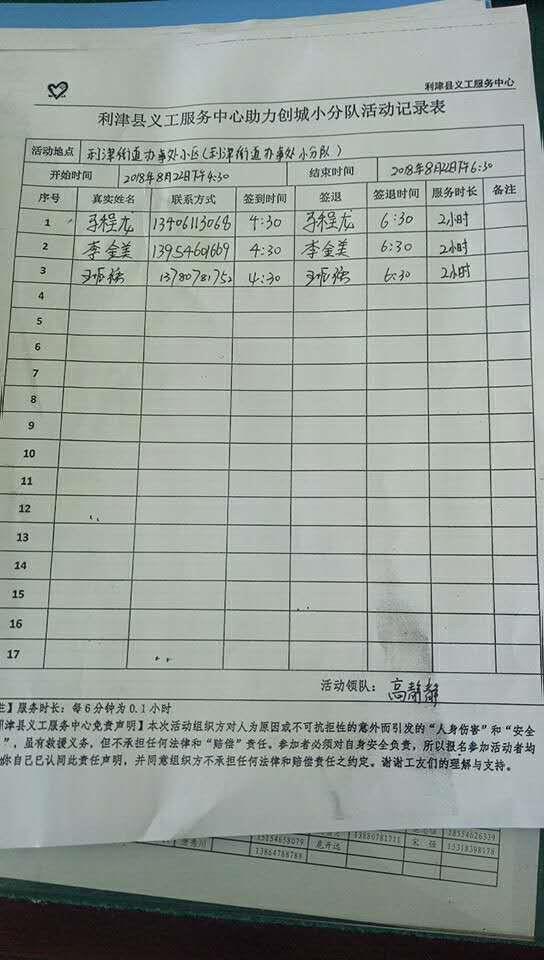 利津县义工服务中心
利津县义工服务中心助力创城小分队活动记录表
活动地点 利津街道办事处小区(利津街道办事处小分队)
开始时间 2018年8月22日下午4:30 结束时间 2018年8月22日下午6:30
序号 真实姓名 联系方式 签到时间 签退 签退时间 服务时长 备注
1 马程龙 13406113068 4:30 马程龙 6:30 2小时
2 李金美 13954601669 4:30 李金美 6:30 2小时
3 13780781752 4:30 6:30 2小时
4
5
6
7
8
9
10
11
12
13
14
15
16
17
活动领队: 高静静
注】服务时长: 每6分钟为0.1小时
利津县义工服务中心免责声明】本次活动组织方对人为原因或不可抗拒性的意外而引发的“人身伤害”和“安全
”, 虽有救援义务, 但不承担任何法律和“赔偿”责任。参加者必须对自身安全负责, 所以报名参加活动者均
你自己已认同此责任声明, 并同意组织方不承担任何法律和赔偿责任之约定。谢谢工友们的理解与支持。
15154658079 13880781711 18554626339
13864788788 15318398178